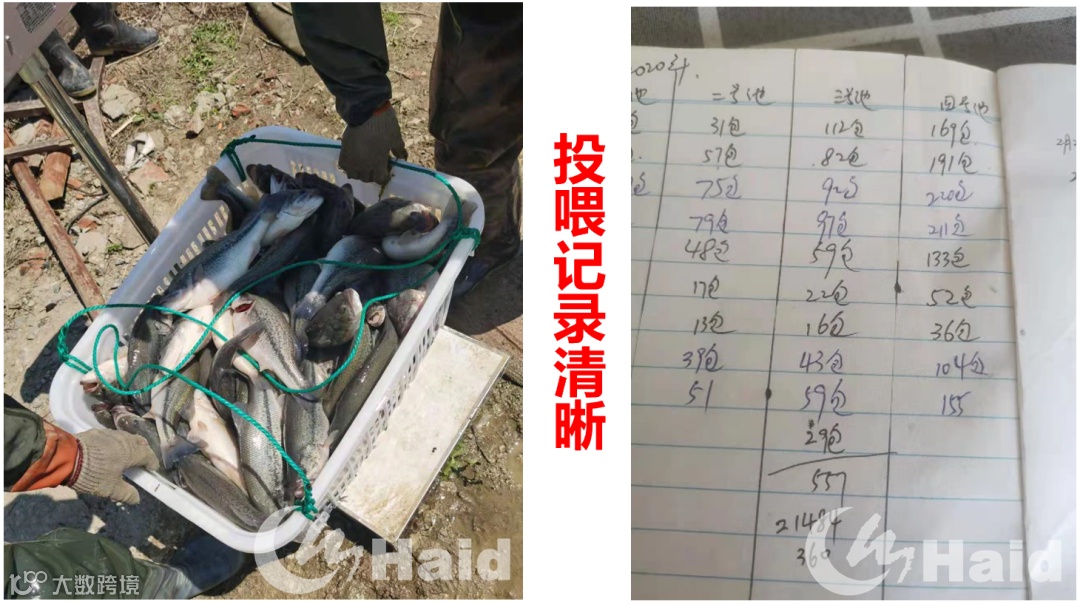 投喂记录清晰
2020年
二号池 三号池 四号池
31包 112包 169包
57包 82包 191包
75包 92包 220包
79包 97包 211包
48包 59包 133包
17包 22包 52包
13包 16包 36包
39包 43包 104包
51 59包 155
29包
557
21484
360
Haid
Haid
大数跨境